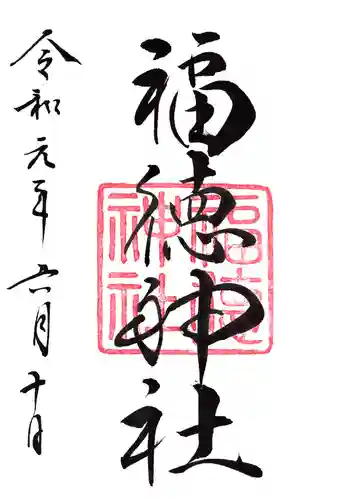 福徳神社
福徳神社
令和元年六月十日